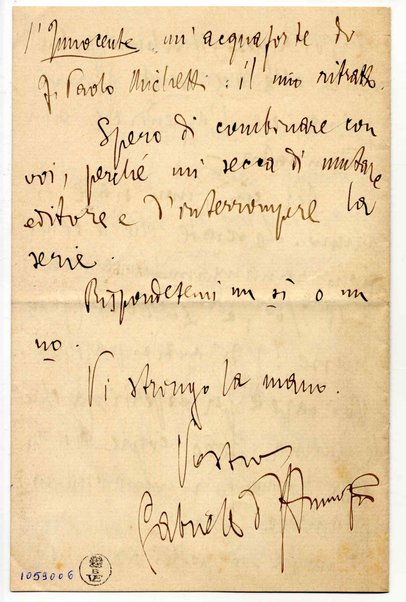 l'Innocente un'acquaforte di
F. Paolo Michetti: il mio ritratto.
Spero di combinare con
voi, perché mi secca di mutare
editore e d'interrompere la
serie.
Rispondetemi un sì o un
no.
Vi stringo la mano.
Vostro
Gabriele d'Annunzio
1059006